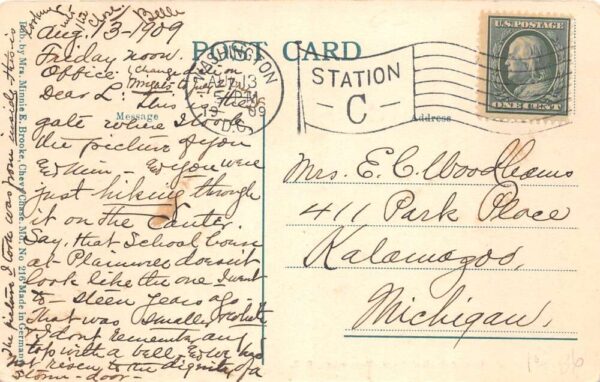 Aug. 13 - 1909
Friday noon.
Office.
Dear L: This is the
gate where I took
the picture of you
just hiking through
it on the Canter.
Say, that School house
at Plainwell doesn't
look like the one I went
to - steen years ago
that was smaller, &
I don't remember any
top with a bell.
not risen to the dignity of a
storm-door-
The picture I took was from inside, this is
looking
Close!
Belle
Pub. by Mrs. Minnie E. Brooke, Chevy Chase, Md. No. 216 Made in Germany
POST CARD
Message
Address
WASHINGTON
AUG 13
5 PM
1909
D.C.
STATION
C
U.S. POSTAGE
ONE CENT
Mrs. E. C. Woodhams
411 Park Place
Kalamazoo,
Michigan.